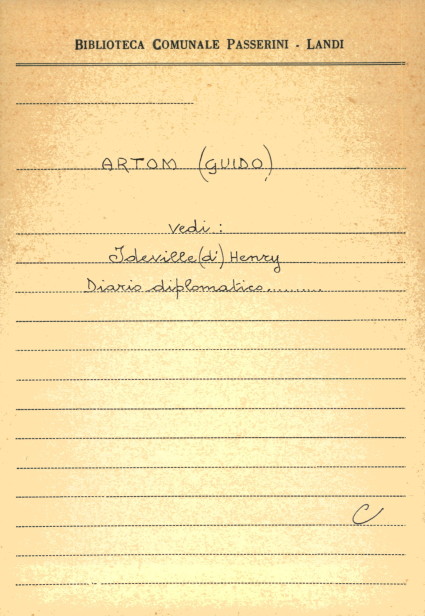 BIBLIOTECA COMUNALE PASSERINI - LANDI
ARTOM (GUIDO)
Vedi :
Ideville (d') Henry
Diario diplomatico..........
C